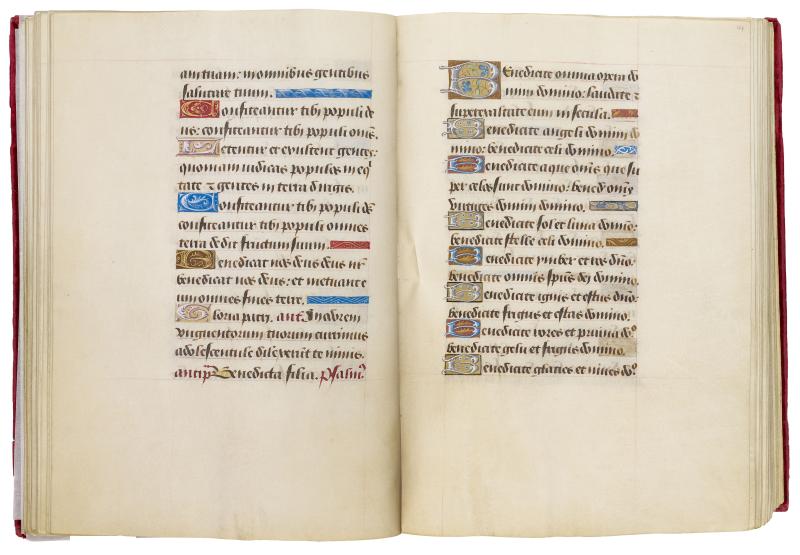 am tuam: in omnibus gentibus
salutare tuum.
Confiteantur tibi populi de
us: confiteantur tibi populi omēs.
Letentur et exultent gentes:
quoniam iudicas populos in eq̄
tate ⁊ gentes in terra dirigis.
Confiteantur tibi populi de
confiteantur tibi populi omnes
terra dedit fructum suum.
Benedicat nos deus deus nr̄
benedicat nos deus: et metuant e
um omnes fines terre.
Gloria patri. ant̄. In odorem
vnguentorum tuorum currimus
adolescentule dilexerunt te nimis.
antip̄ Benedicta filia. Psalm̄
Benedicite omnia opera do
mini domino: laudate ⁊
superexaltate eum in secula.
Benedicite angeli domini do
mino: benedicite celi domino.
Benedicite aque omēs que su
per celos sunt domino: bened omēs
virtutes domini domino.
Benedicite sol et luna domīo:
benedicite stelle celi domino.
Benedicite ymber et ros dn̄o:
benedicite omnis spūs dei domino.
Benedicite ignis et estus dn̄o:
benedicite frigus et estas domino.
Benedicite rores et pruina do°
benedicite gelu et frigus domino.
Benedicite glacies et niues do°